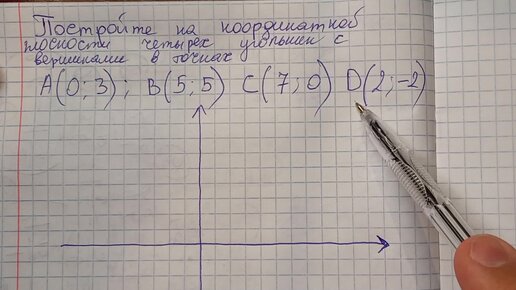 Постройте на координатной
плоскости четырех угольник с
вершинами в точках
A(0;3); B(5;5) C(7;0) D(2;-2)